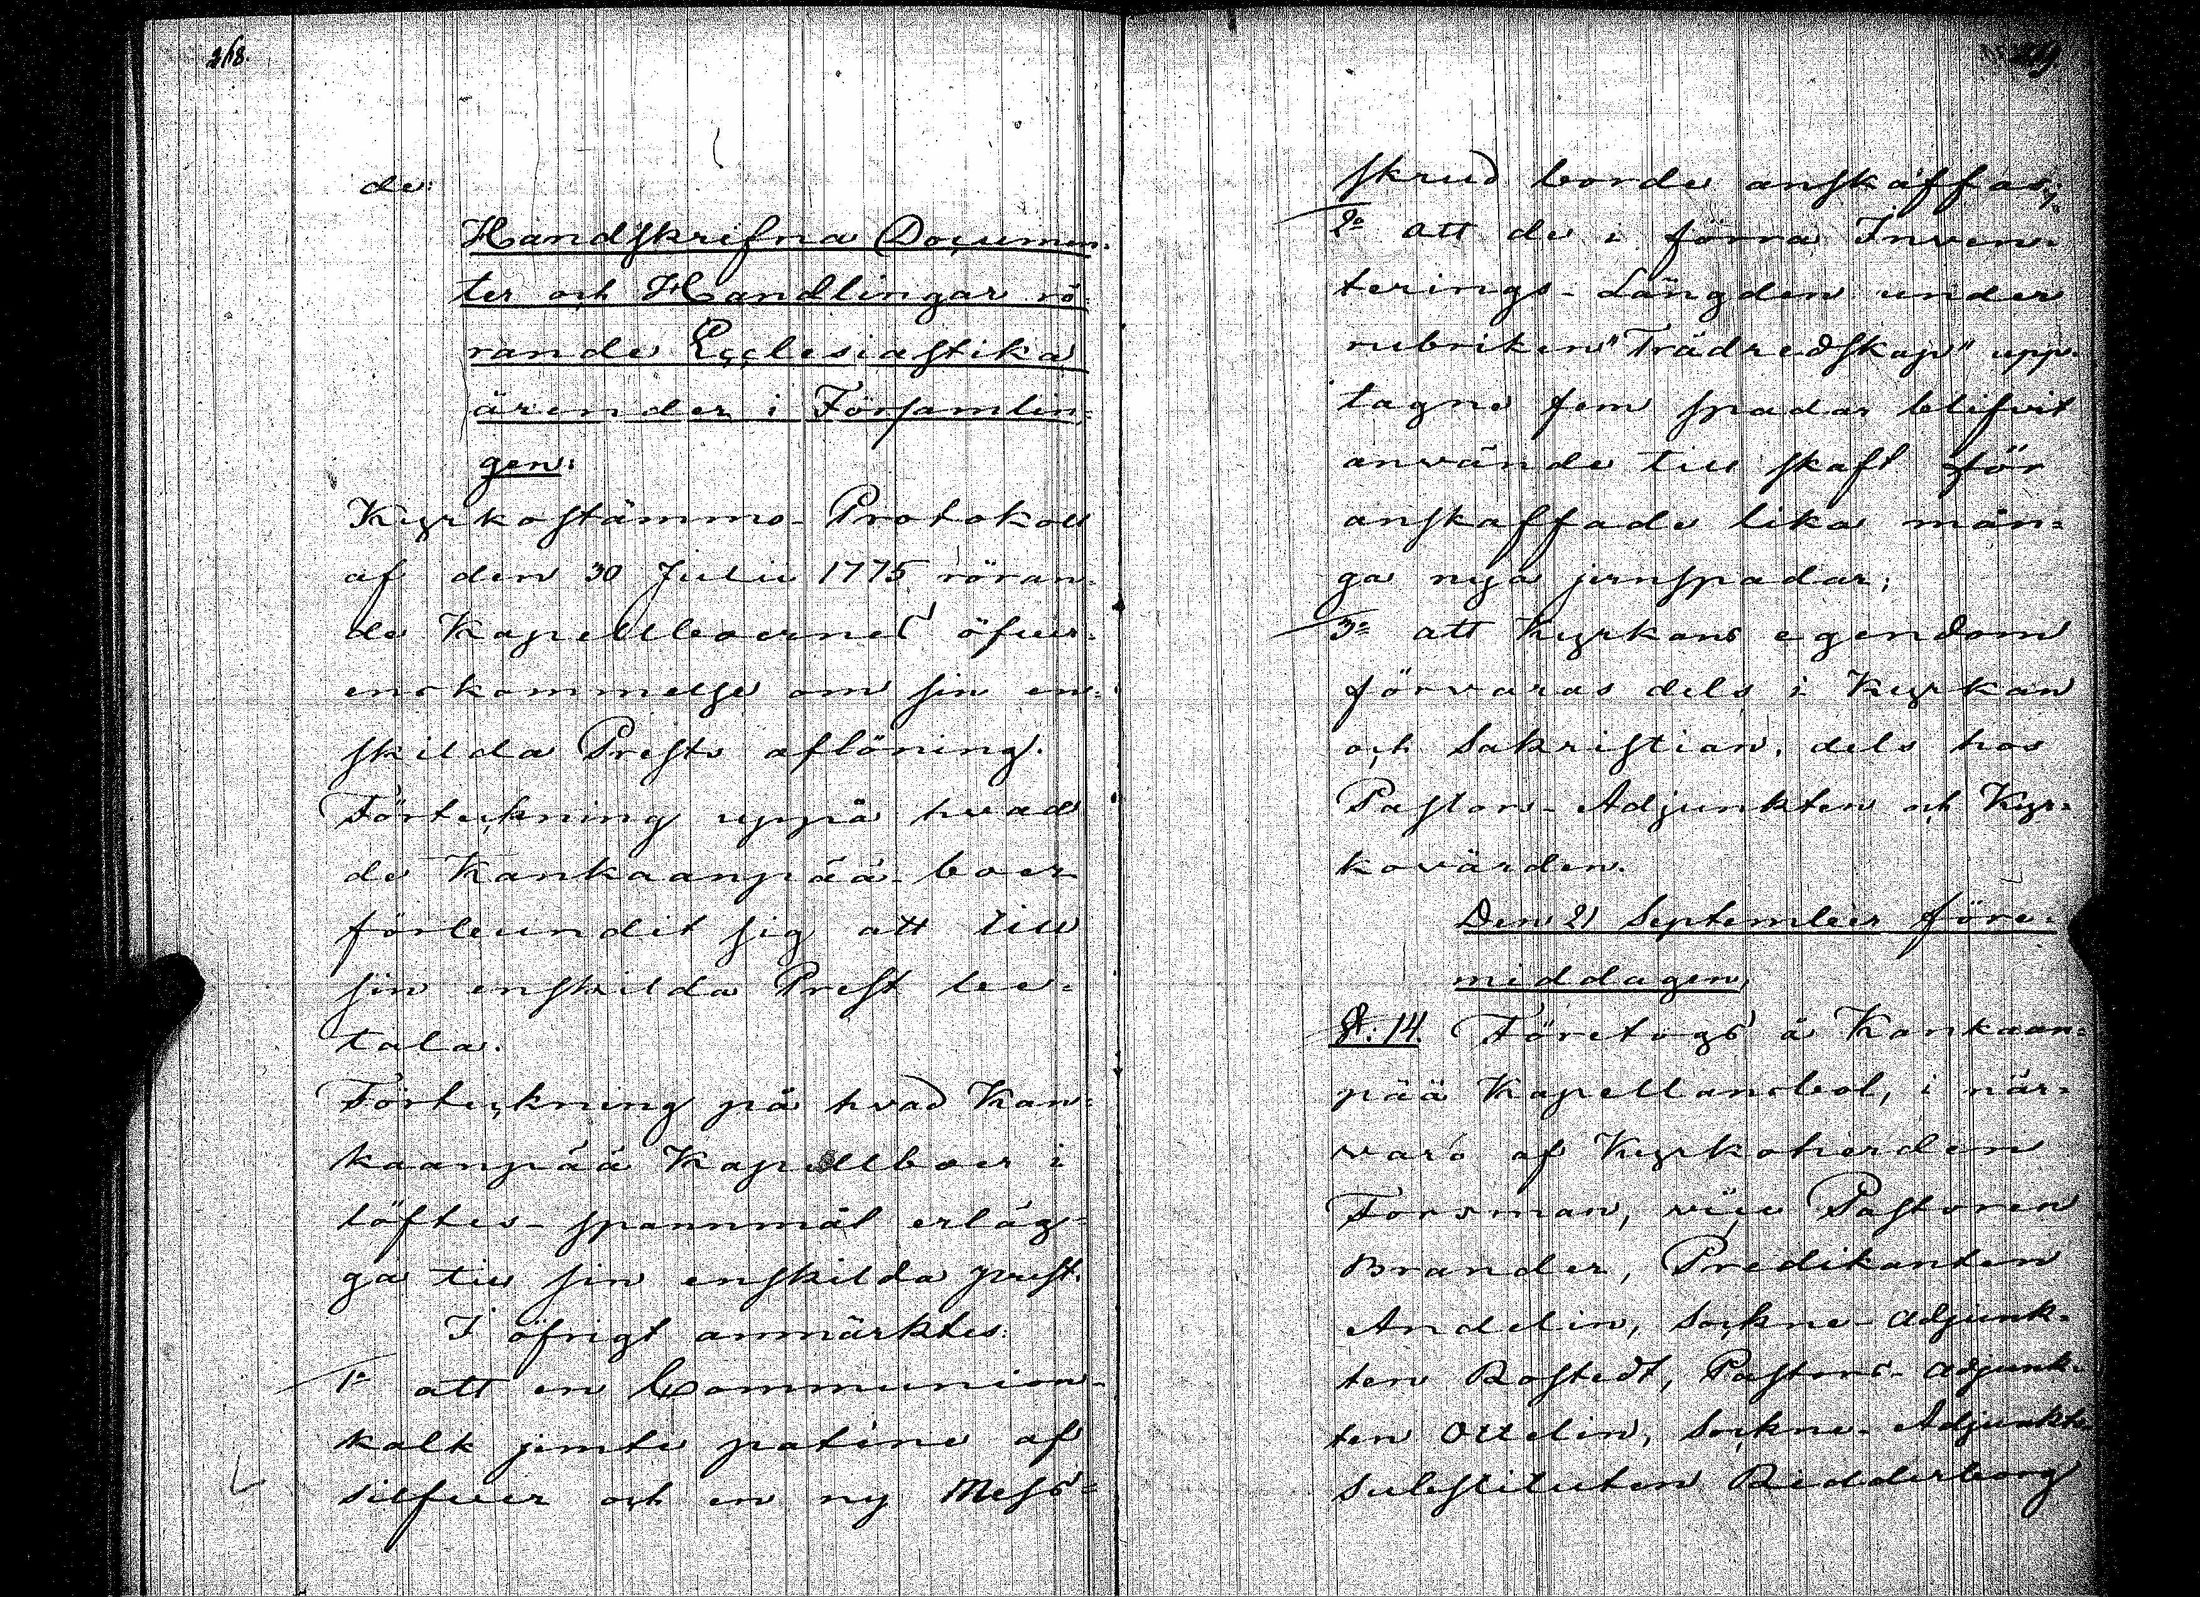 268.
de:
Handskrifna Documen-
ter och Handlingar rö-
rande Ecclesiastika
ärender i Församlin-
gen:
Kyrkostämmo-Protokoll
af den 30 Julii 1775 röran-
de Kapellboernes öfver-
enskommelse om sin en-
skilda Prests aflöning.
Förteckning uppå hvad
de Kankaanpää-boer
förbundit sig att till
sin enskilda Prest be-
tala.
Förteckning på hvad Kan-
kaanpää Kapellboer i
löftes-spannmål erläg-
ga till sin enskilda prest.
I öfrigt anmärktes:
1o att en Communion-
kalk jemte patène af
silfver och en ny Mess-
skrud borde anskaffas;
2o att de i förra Inven-
terings-Längden under
rubriken "Trädredskap" upp-
tagne fem spadar blifvit
använde till skaft för
anskaffade lika mån-
ga nya jernspadar;
3o att kyrkans egendom
förvaras dels i Kyrkan
och Sakristian, dels hos
Pastors-Adjunkten och Kyr-
kovärden.
Den 21 September före-
middagen,
§. 14. Företogs å Kankaan-
pää Kapellansbol, i när-
varo af Kyrkoherden
Forsman, vice Pastoren
Brander, Predikanten
Andelin, Sockne-Adjunk-
ten Bostedt, Pastors-Adjunk-
ten Ottelin, Sockne-Adjunkts
substituten Ridderborg